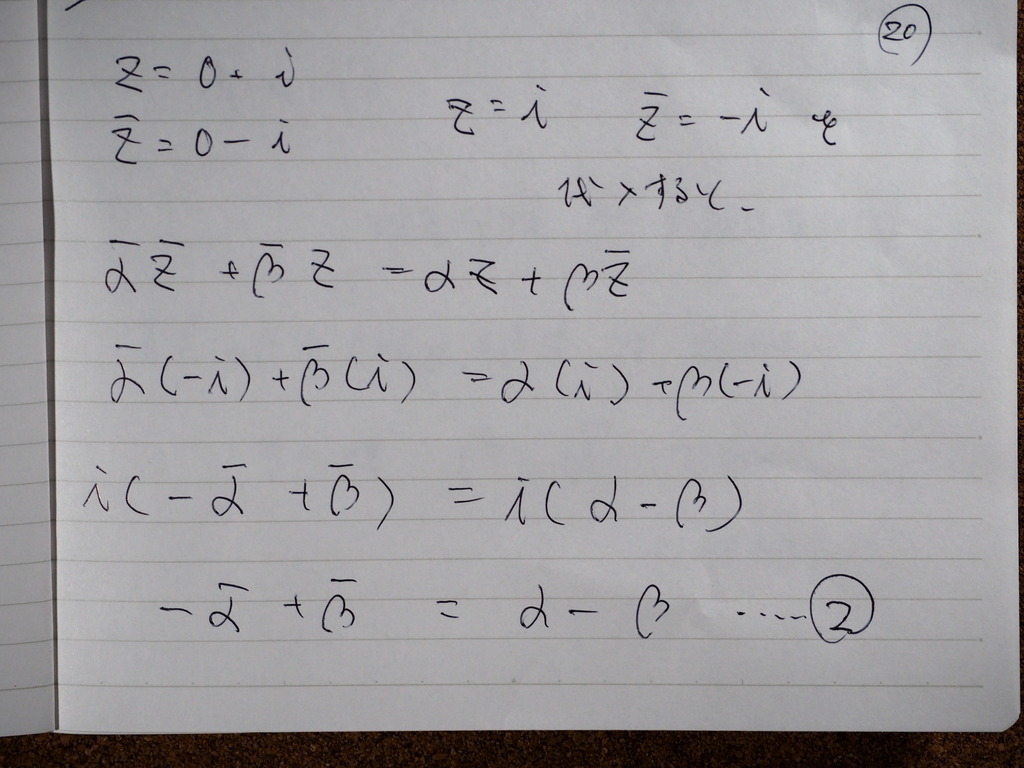 ⑳
z = 0 + i
z̄ = 0 - i
z = i z̄ = -i を
代入すると、
ᾱz̄ + β̄z = αz + βz̄
ᾱ(-i) + β̄(i) = α(i) + β(-i)
i(-ᾱ + β̄) = i(α - β)
-ᾱ + β̄ = α - β ‥‥‥②